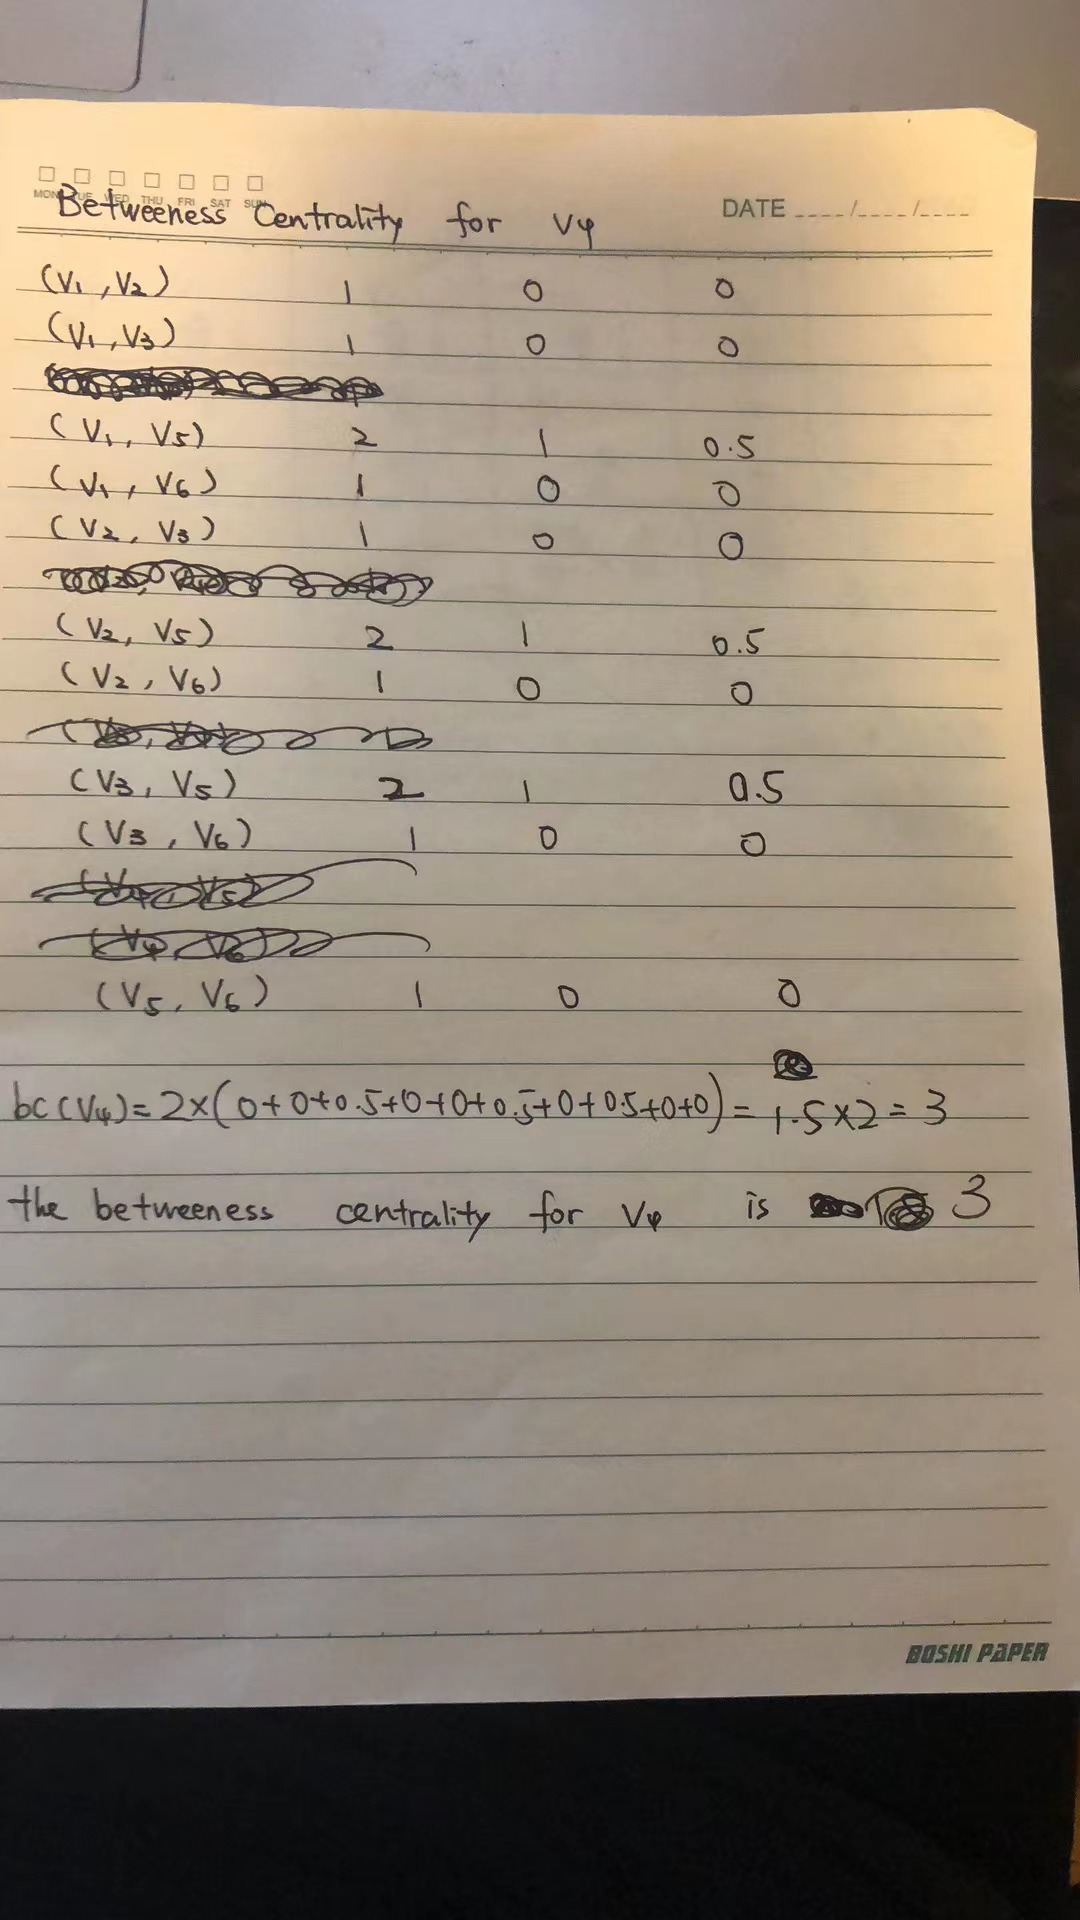 MON TUE WED THU FRI SAT SUN
Betweeness Centrality for V4 DATE ____/____/____
(V1, V2) 1 0 0
(V1, V3) 1 0 0
(V1, V5) 2 1 0.5
(V1, V6) 1 0 0
(V2, V3) 1 0 0
(V2, V5) 2 1 0.5
(V2, V6) 1 0 0
(V3, V5) 2 1 0.5
(V3, V6) 1 0 0
(V5, V6) 1 0 0
bc(V4)=2×(0+0+0.5+0+0+0.5+0+0.5+0+0)=1.5×2=3
the betweeness centrality for V4 is 3
BOSHI PAPER